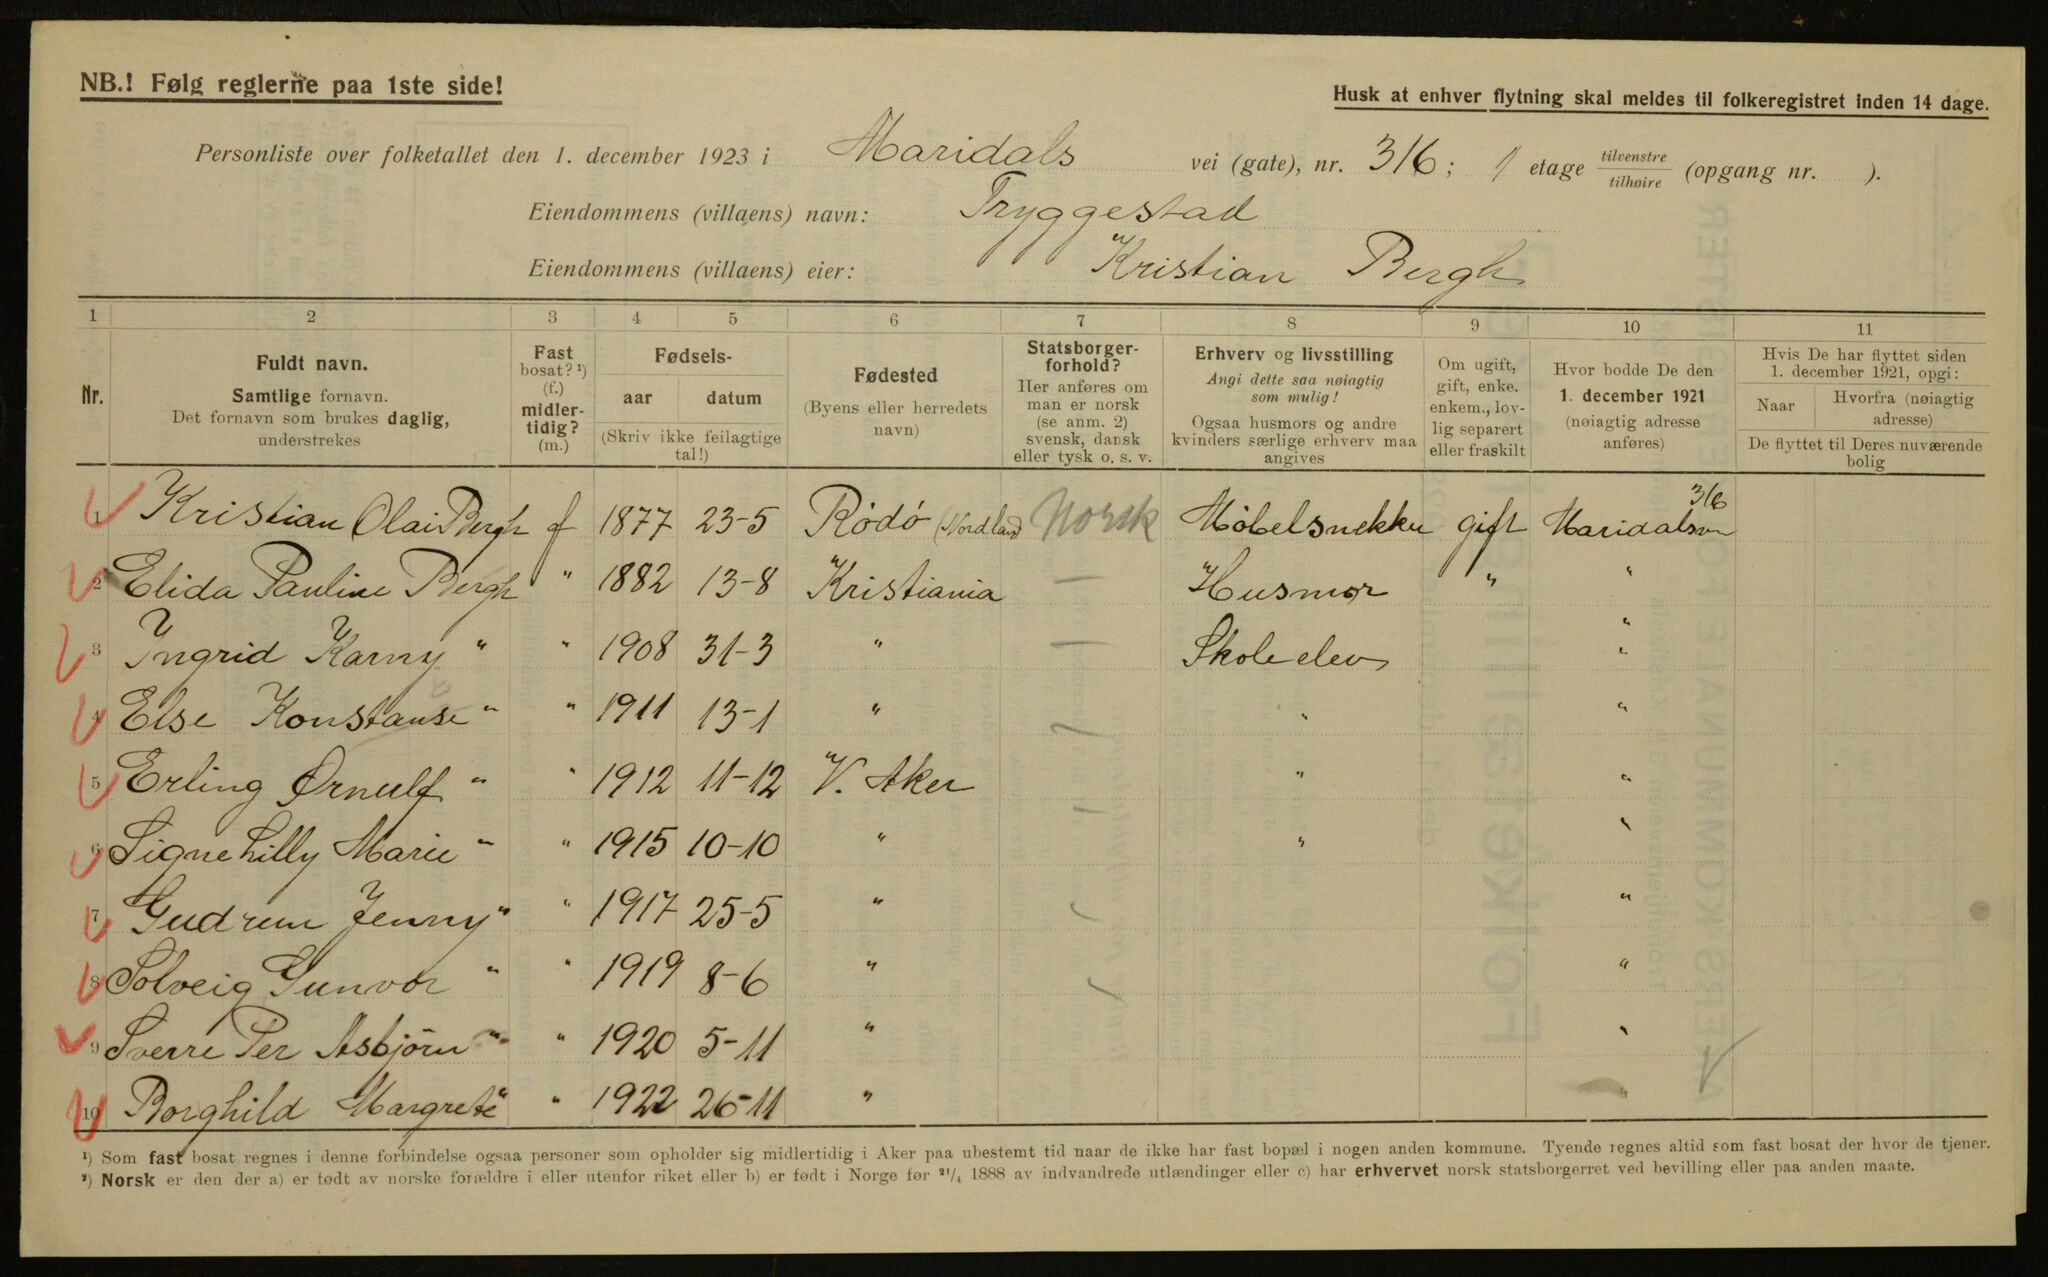 NB.! Følg reglerne paa 1ste side!
Husk at enhver flytning skal meldes til folkeregistret inden 14 dage.
Personliste over folketallet den 1. december 1923 i Maridals vei (gate), nr. 316; 1 etage tilvenstre/tilhøire (opgang nr. ).
Eiendommens (villaens) navn: Tryggestad
Eiendommens (villaens) eier: Kristian Bergh
1 2 3 4 5 6 7 8 9 10 11
Nr.
Fuldt navn.
Samtlige fornavn.
Det fornavn som brukes daglig,
understrekes
Fast
bosat? ¹)
(f.)
midler-
tidig?
(m.)
Fødsels-
aar datum
(Skriv ikke feilagtige
tal!)
Fødested
(Byens eller herredets
navn)
Statsborger-
forhold?
Her anføres om
man er norsk
(se anm. 2)
svensk, dansk
eller tysk o. s. v.
Erhverv og livsstilling
Angi dette saa nøiagtig
som mulig!
Ogsaa husmors og andre
kvinders særlige erhverv maa
angives
Om ugift,
gift, enke.
enkem., lov-
lig separert
eller fraskilt
Hvor bodde De den
1. december 1921
(nøiagtig adresse
anføres)
Hvis De har flyttet siden
1. december 1921, opgi:
Naar
Hvorfra (nøiagtig
adresse)
De flyttet til Deres nuværende
bolig
1 Kristian Olai Bergh f 1877 23-5 Rödö (Nordland) Norsk Möbelsnekker gift Maridalsvn 316
2 Elida Pauline Bergh " 1882 13-8 Kristiania — Husmor " "
3 Ingrid Karny " " 1908 31-3 " — Skoleelev "
4 Else Konstanse " " 1911 13-1 " " "
5 Erling Ørnulf " " 1912 11-12 V. Aker " "
6 Signe Lilly Marie " " 1915 10-10 " " "
7 Gudrun Jenny " " 1917 25-5 " "
8 Solveig Gunvor " " 1919 8-6 " "
9 Sverre Per Asbjörn " " 1920 5-11 " "
10 Borghild Margrete " " 1922 26-11 " "
¹) Som fast bosat regnes i denne forbindelse ogsaa personer som opholder sig midlertidig i Aker paa ubestemt tid naar de ikke har fast bopæl i nogen anden kommune. Tyende regnes altid som fast bosat der hvor de tjener.
²) Norsk er den der a) er født av norske forældre i eller utenfor riket eller b) er født i Norge før ²¹/₄ 1888 av indvandrede utlændinger eller c) har erhvervet norsk statsborgerret ved bevilling eller paa anden maate.